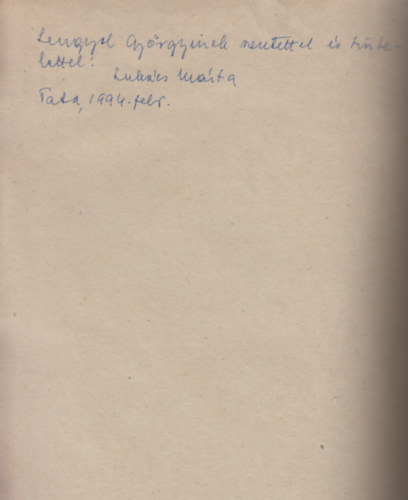 Lengyel Györgyinek szeretettel és tiszte-
lettel:
Lukács Márta
Tata, 1994. febr.